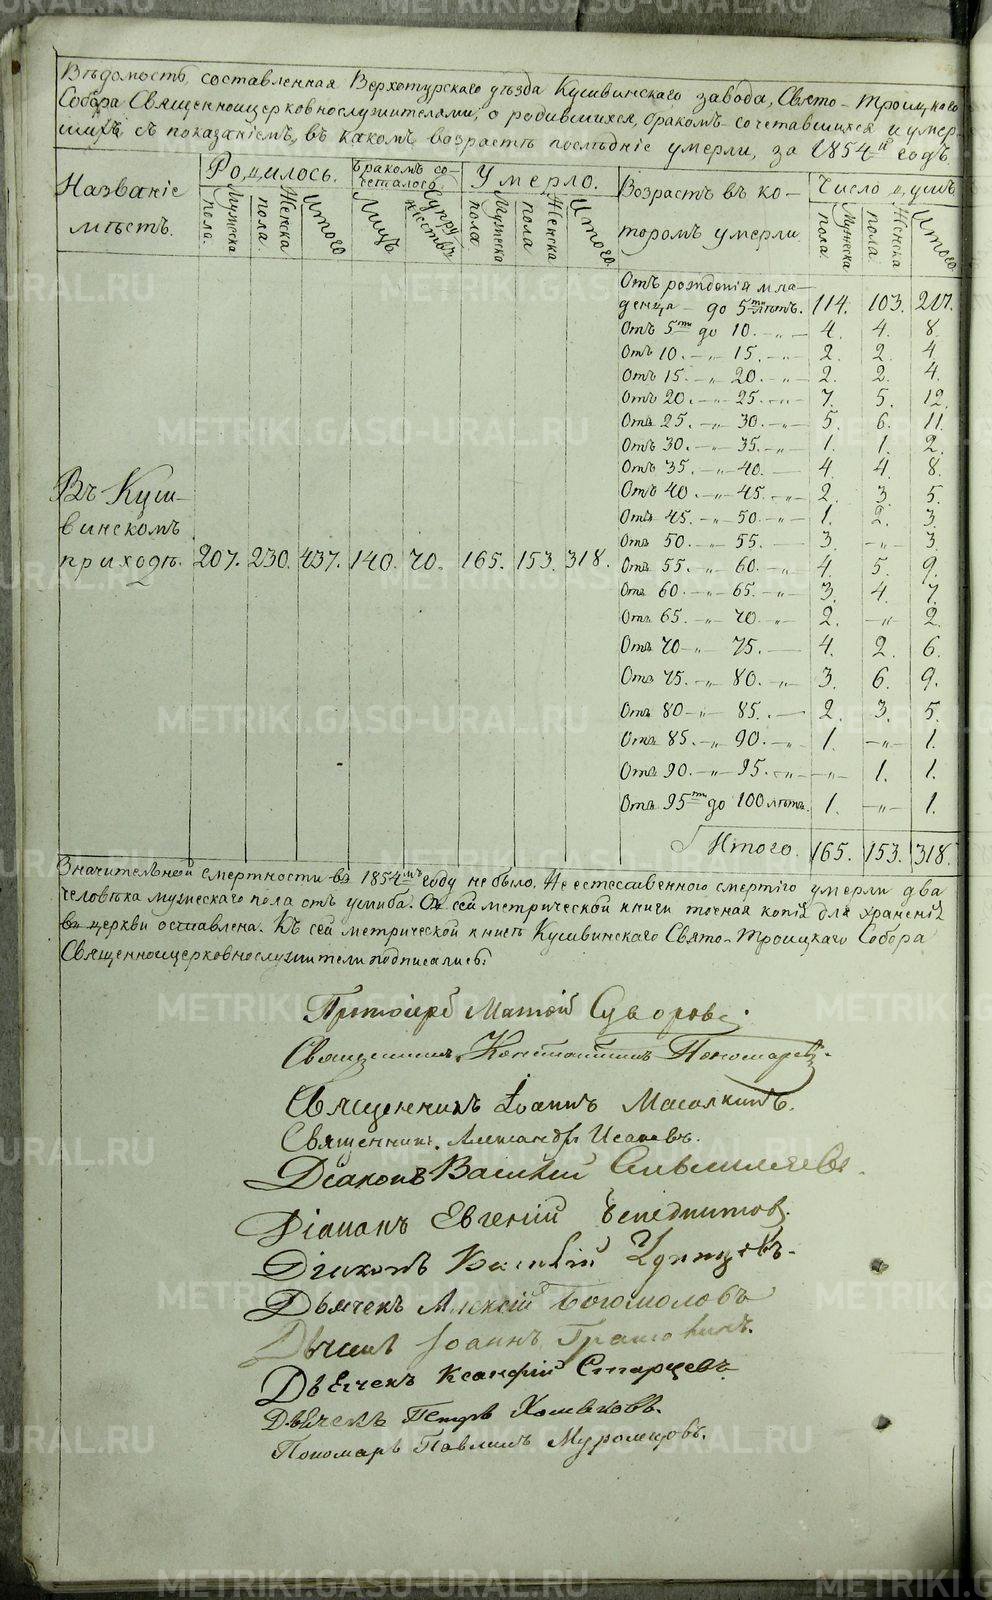 Вѣдомость, составленная Верхотурскаго уѣзда Кушвинскаго завода, Свято-Троицкаго
Собора Священноицерковнослужителями, о родившихся, бракомъ-сочетавшихся и умер
шихъ, съ показаніемъ, въ какомъ возрастѣ послѣдніе умерли, за 1854й годъ.
Названіе мѣстъ.
Родилось.
Бракомъ сочеталось
Умерло.
Возрастъ въ ко-
торомъ умерли.
Число душъ
Мужеска пола.
Женска пола.
Итого
Лицъ
Супружествъ
Мужеска пола
Женска пола
Итого
Мужеска пола
Женска пола.
Итого
Отъ рожденія мла-
денца - до 5ти лѣтъ. 114. 103. 217.
Отъ 5ти до 10. -„- 4. 4. 8.
Отъ 10. -„- 15. -„- 2. 2. 4
Отъ 15. -„- 20. -„- 2. 2. 4.
Отъ 20. -„- 25. -„- 7. 5. 12.
Отъ 25. -„- 30. -„- 5. 6. 11.
Отъ 30. -„- 35. -„- 1. 1. 2.
Отъ 35. -„- 40. — 4. 4. 8.
Отъ 40. -„- 45. -„- 2. 3. 5.
Отъ 45. -„- 50. -„- 1. 2. 3.
Отъ 50. -„- 55. — 3. -„- 3.
Отъ 55. -„- 60. -„- 4. 5. 9.
Отъ 60. -„- 65. -„- 3. 4. 7.
Отъ 65. -„- 70. -„- 2. -„- 2.
Отъ 70 -„- 75. — 4. 2. 6.
Отъ 75. -„- 80. -„- 3. 6. 9.
Отъ 80 -„- 85. — 2. 3. 5.
Отъ 85. -„- 90. -„- 1. -„- 1.
Отъ 90. -„- 95. -„- -„- 1. 1.
Отъ 95ти до 100 лѣтъ. 1. -„- 1.
Итого. 165. 153. 318.
Въ Куш-
винскомъ
приходѣ. 207. 230. 437. 140. 70. 165. 153. 318.
Значительной смертности въ 1854мъ году не было. Неестественного смертію умерли два
человѣка мужескаго пола отъ ушиба. Съ сей метрической книги точная копія для храненія
въ церкви оставлена. Къ сей метрической книгѣ Кушвинскаго Свято-Троицкаго Собора
Священноицерковнослужители подписались:
Протоіерей Матѳій Суворовъ.
Священникъ Константинъ Пономаревъ.
Священникъ Іоаннъ Масалкинъ.
Священникъ. Александръ Исаковъ.
Діаконъ Василій
Діаконъ Евгеній
Діаконъ Василій Удинцовъ.
Дьячекъ Алексій Богомоловъ
Дьячекъ Іоаннъ
Дьячекъ Ксанфій Старцевъ.
Дьячекъ Петръ Хлыновъ.
Пономарь Павлинъ Муромцовъ.
METRIKI.GASO-URAL.RU